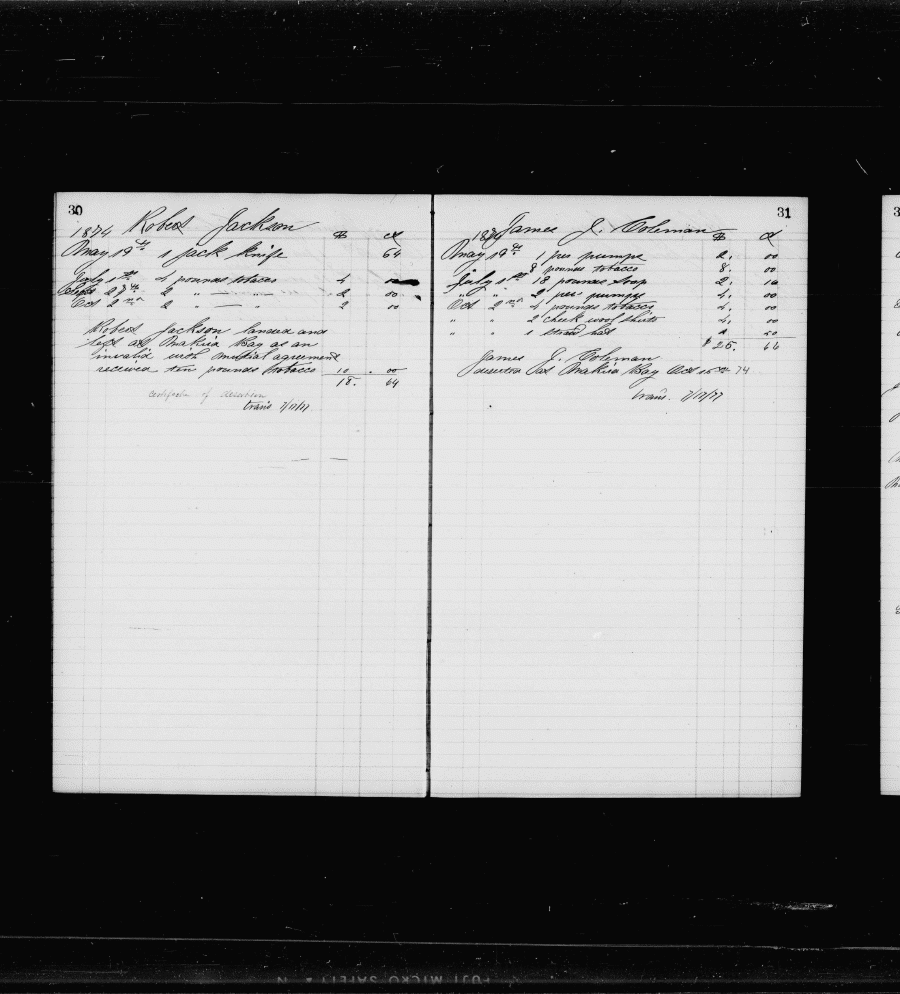 30
1874 Robert Jackson $ ct
May 19th 1 jack knife 64
July 1st 4 pounds tobacco 4 00
Sept 27th 2 " " 2 00
Oct 2nd 2 " " 2 00
Robert Jackson landed and
left at Makira Bay as an
invalid with mutual agreement
received ten pounds tobacco 10 . 00
18. 64
Certificate of desertion
trans 7/17/77
31
1874 James J. Coleman $ ct
May 19th 1 par pumps 2. 00
8 pounds tobacco 8. 00
July 1st 18 pounds soap 2. 16
" " 2 pars pumps 4. 00
Oct 2nd 4 pounds tobacco 4. 00
" " 2 check wool shirts 4. 00
" " 1 straw hat 50
$ 25. 66
James J. Coleman
deserted at Makira Bay Oct 15th 74
trans. 7/17/77
3
FUJI MICRO SAFETY